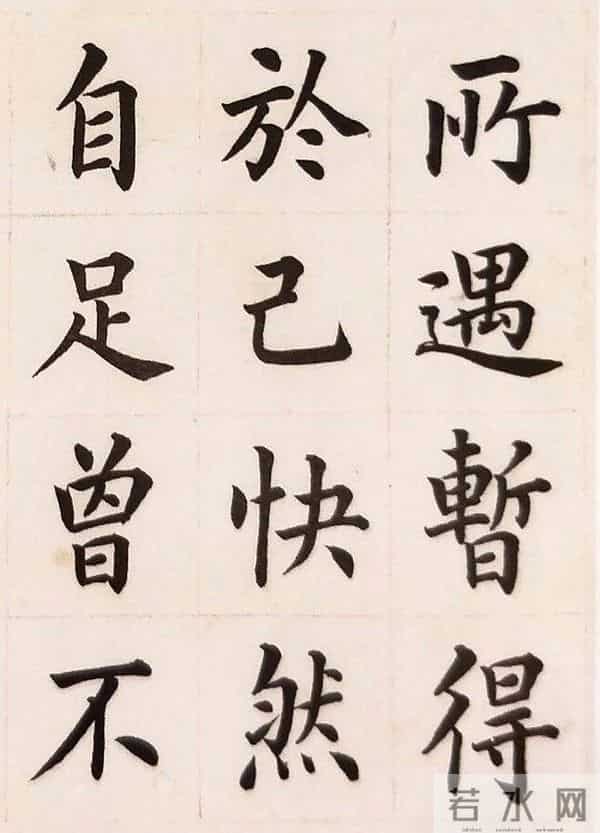 所遇暫得
於己快然
自足曾不
若水网